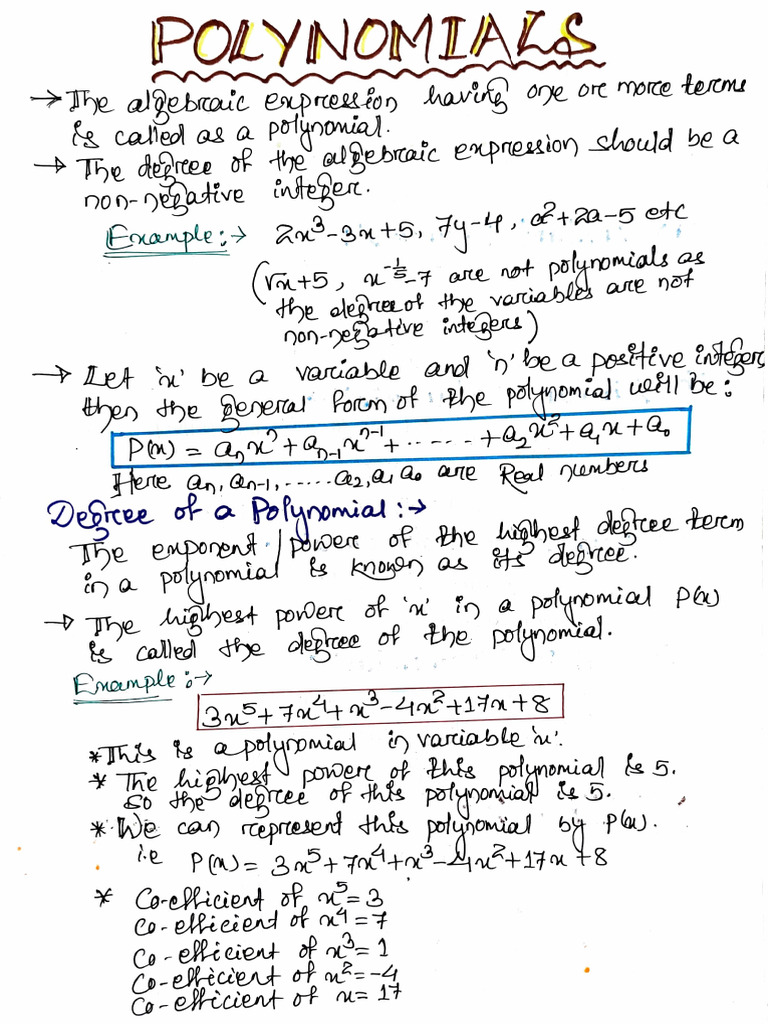 POLYNOMIALS
→ The algebraic expression having one or more terms
is called as a polynomial.
→ The degree of the algebraic expression should be a
non-negative integer.
Example:→ 2x³-3x+5, 7y-4, a²+2a-5 etc
(√x+5, x^-1/5-7 are not polynomials as
the degree of the variables are not
non-negative integers)
→ Let 'x' be a variable and 'n' be a positive integer,
then the general form of the polynomial will be:
P(x) = aₙxⁿ+aₙ₋₁xⁿ⁻¹+......+a₂x²+a₁x+a₀
Here aₙ, aₙ₋₁, ......a₂, a₁ a₀ are Real numbers
Degree of a Polynomial:→
The exponent/power of the highest degree term
in a polynomial is known as its degree.
→ The highest power of 'x' in a polynomial P(x)
is called the degree of the polynomial.
Example:→
3x⁵+7x⁴+x³-4x²+17x+8
*This is a polynomial in variable 'x'.
* The highest power of this polynomial is 5.
So the degree of this polynomial is 5.
* We can represent this polynomial by P(x).
i.e P(x) = 3x⁵+7x⁴+x³-4x²+17x+8
* Co-efficient of x⁵=3
Co-efficient of x⁴=7
Co-efficient of x³=1
Co-efficient of x²=-4
Co-efficient of x=17